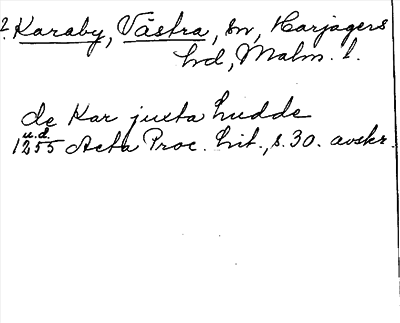 2. Karaby, Västra, sn, Harjagers
hd, Malm. l.
de Kar juxta hudde
u.d.
1255 Acta Proc. Lit., s. 30. avskr.